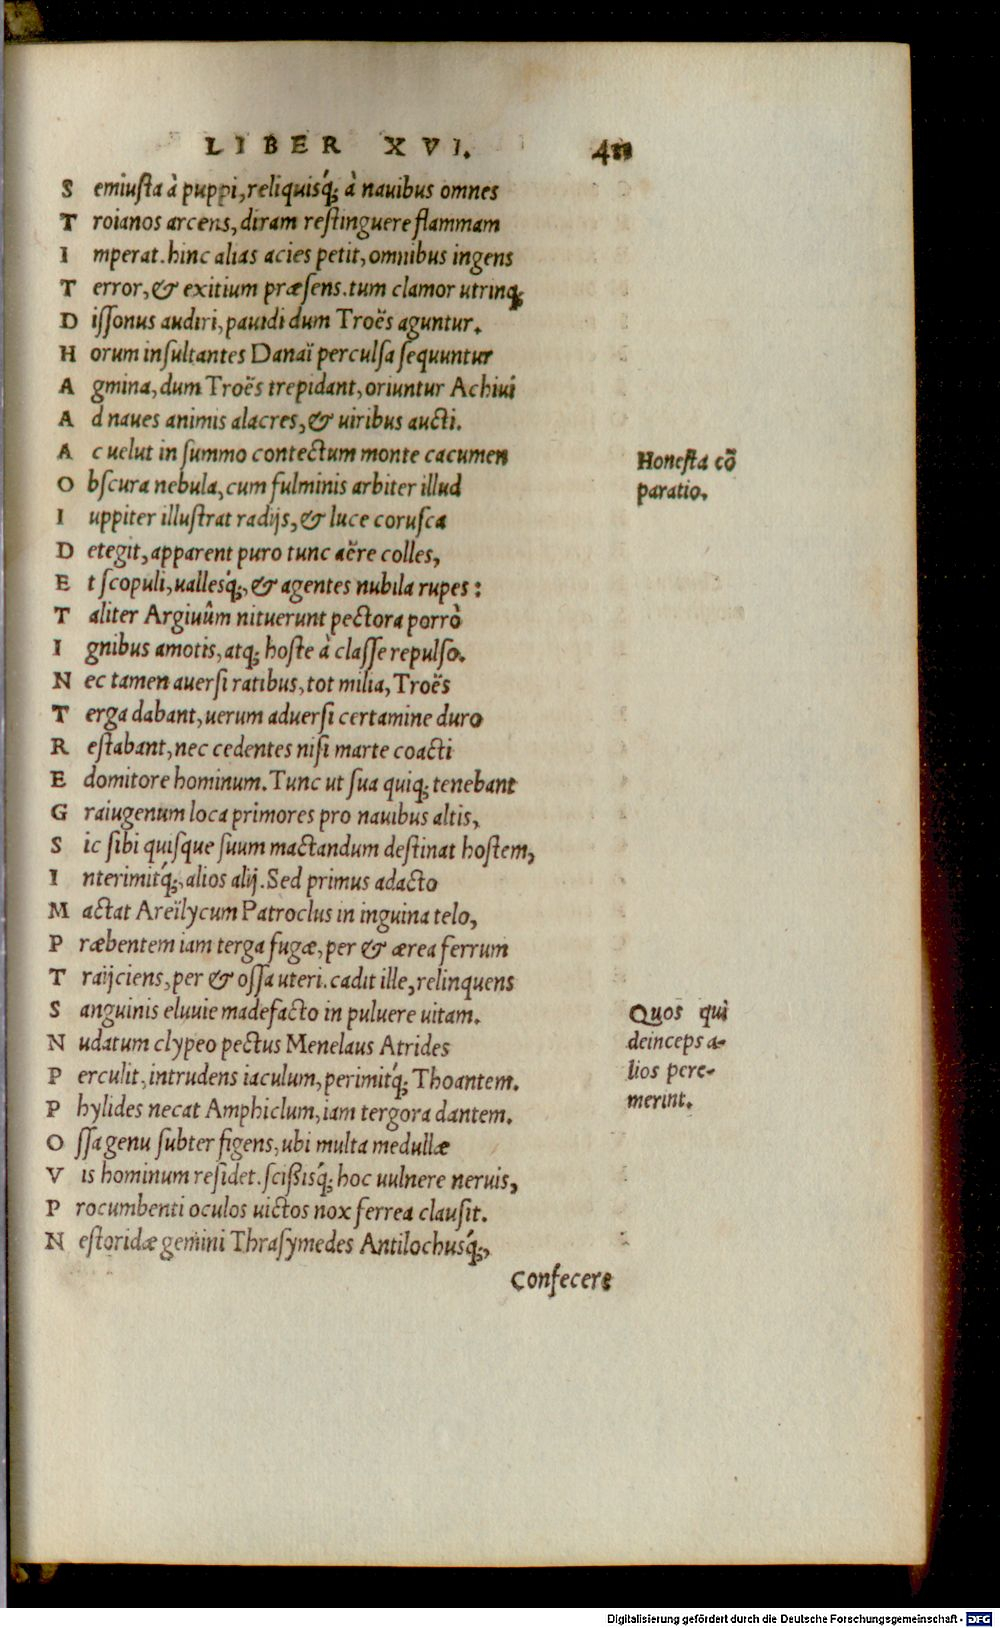 LIBER XVI.
S emiusta à puppi, reliquisq́; à nauibus omnes
T roianos arcens, diram restinguere flammam
I mperat. hinc alias acies petit, omnibus ingens
T error, & exitium præsens. tum clamor utrinq;
D issonus audiri, pauidi dum Troës aguntur.
H orum insultantes Danaï perculsa sequuntur
A gmina, dum Troës trepidant, oriuntur Achiui
A d naues animis alacres, & uiribus aucti.
A c uelut in summo contectum monte cacumen
O bscura nebula, cum fulminis arbiter illud
I uppiter illustrat radijs, & luce corusca
D etegit, apparent puro tunc aëre colles,
E t scopuli, uallesq́;, & agentes nubila rupes:
T aliter Argiuûm nituerunt pectora porrò
I gnibus amotis, atq; hoste à classe repulso.
N ec tamen auersi ratibus, tot milia, Troës
T erga dabant, uerum aduersi certamine duro
R estabant, nec cedentes nisi marte coacti
E domitore hominum. Tunc ut sua quiq; tenebant
G raiugenum loca primores pro nauibus altis,
S ic sibi quisque suum mactandum destinat hostem,
I nterimitq́;, alios alij. Sed primus adacto
M actat Areïlycum Patroclus in inguina telo,
P ræbentem iam terga fugæ, per & ærea ferrum
T raijciens, per & ossa uteri. cadit ille, relinquens
S anguinis eluuie madefacto in puluere uitam.
N udatum clypeo pectus Menelaus Atrides
P erculit, intrudens iaculum, perimitq́; Thoantem.
P hylides necat Amphiclum, iam tergora dantem.
O ssa genu subter figens, ubi multa medullæ
V is hominum residet. scißisq́; hoc uulnere neruis,
P rocumbenti oculos uictos nox ferrea clausit.
N estoridæ gemini Thrasymedes Antilochusq́;,
Confecere
Honesta cõ
paratio.
Quos qui
deinceps a-
lios pere-
merint.
Digitalisierung gefördert durch die Deutsche Forschungsgemeinschaft - DFG